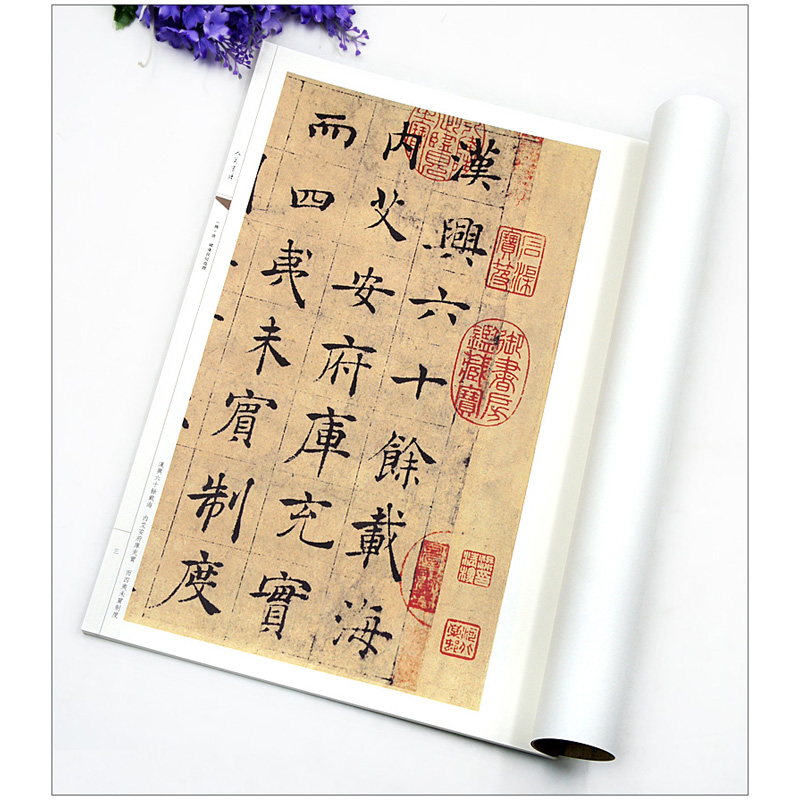 漢興六十餘載海
内艾安府庫充實
而四夷未賓制度
石渠寶笈
御書房鑑藏寶
漢興六十餘載海 内艾安府庫充實 而四夷未賓制度
三